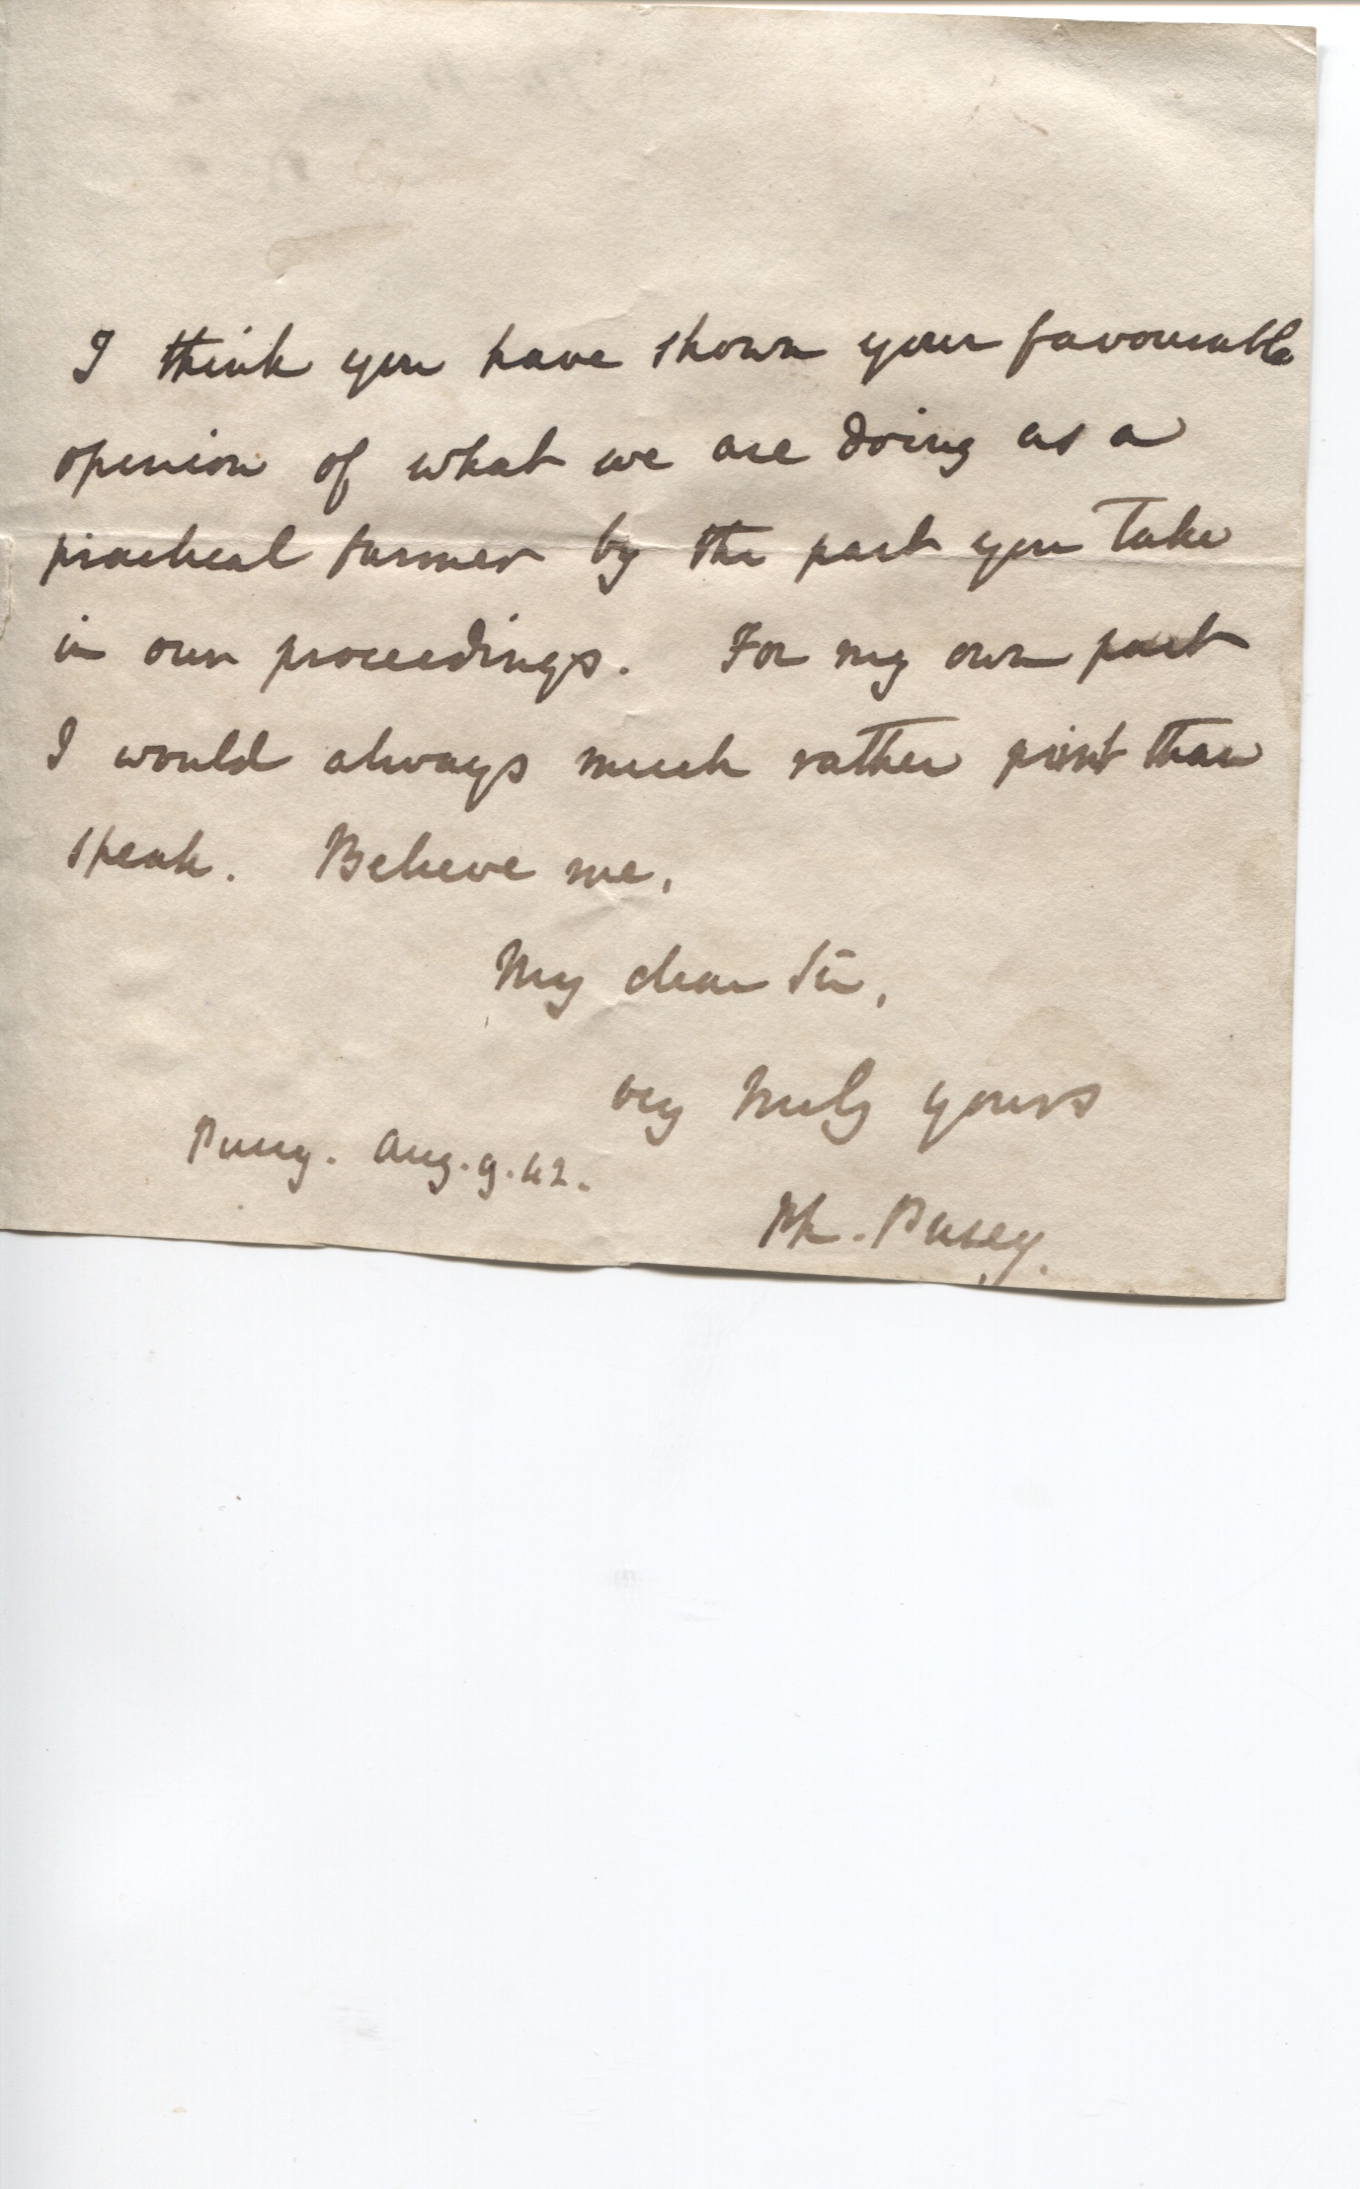 I think you have shown your favourable
opinion of what we are doing as a
practical farmer by the part you take
in our proceedings. For my own part
I would always much rather print than
speak. Believe me,
My dear Sir,
very truly yours
Pusey. Aug. 9. 42.
Ph. Pusey.